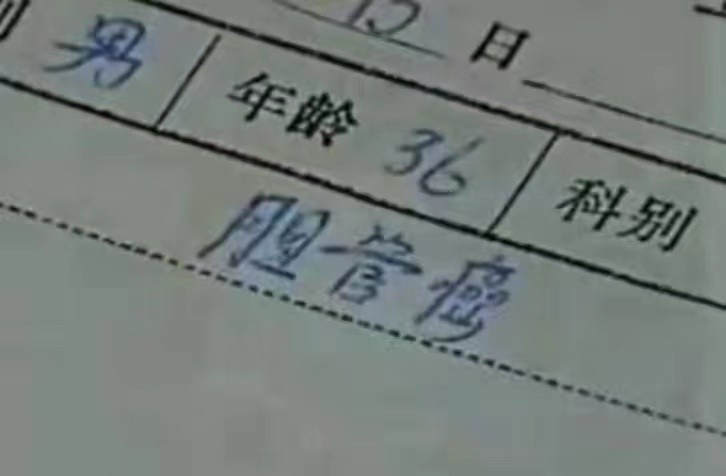 15日
别 男 年龄 36 科别
胆管癌